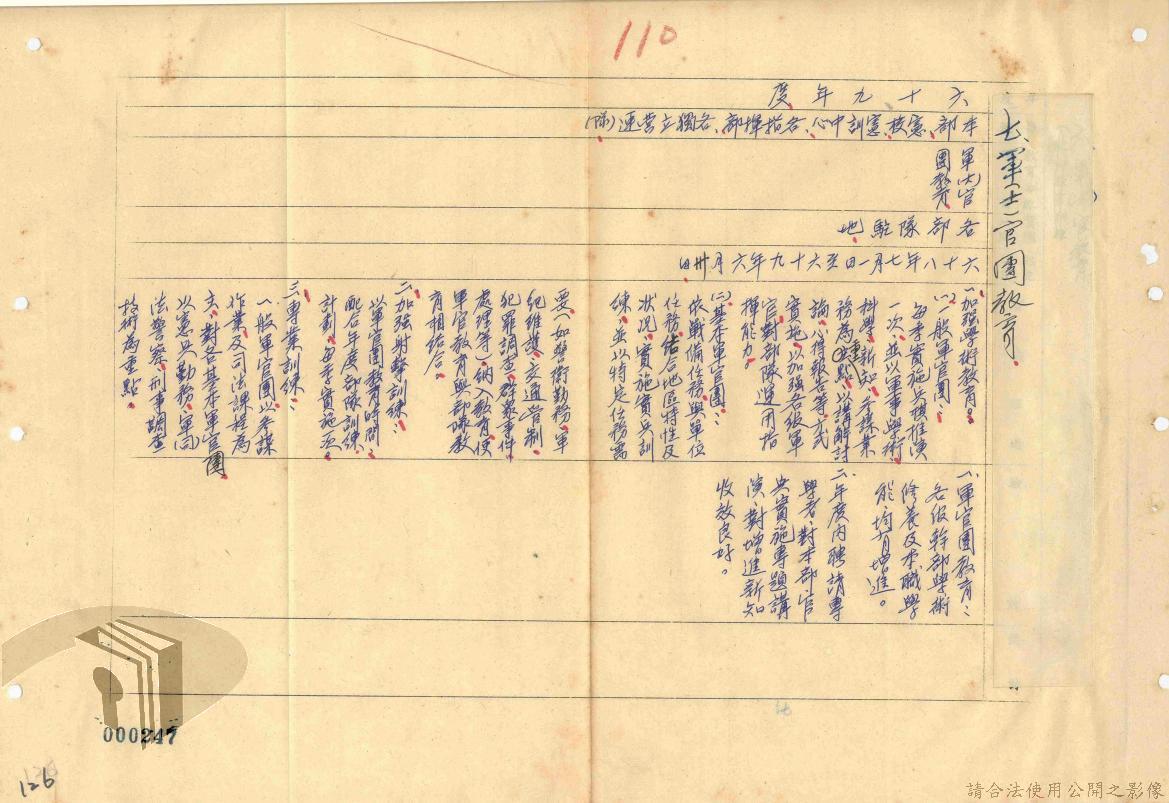 110
七、軍(士)官團教育
六十九年度
本部、憲校、憲訓中心、各指揮部、各獨立營連(隊)
軍(士)官
團教育
各部隊駐地
六十八年七月一日至六十九年六月卅日
一、加強學術教育：
(一)一般軍官團：
每季實施兵棋推演
一次、並以軍事學術、
科學新知、參謀業
務為重點、以講解討
論、心得報告等方式
實施、以加強各級軍
官對部隊運用指
揮能力。
(二)基本軍官團：
依戰備任務、與單位
任務、結合地區特性及
狀況、實施實兵訓
練、並以特定任務需
要、(如警衛勤務、軍
紀維護、交通管制、
犯罪調查、群眾事件
處理等)納入教育、使
軍官教育與部隊教
育相結合。
二、加強射擊訓練：
以軍官團教育時間、
配合年度部隊訓練
計劃、每季實施一次。
三、專業訓練：
一般軍官團以參謀
作業及司法課程為
主、對各基本軍官團
以憲兵勤務、軍司
法警察、刑事調查
技術為重點。
一、軍官團教育：
各級幹部學術
修養及本職學
能、均有增進。
二、年度內聘請專
學者、對本部官
兵實施專題講
演、對增進新知
收效良好。
000247
126
請合法使用公開之影像